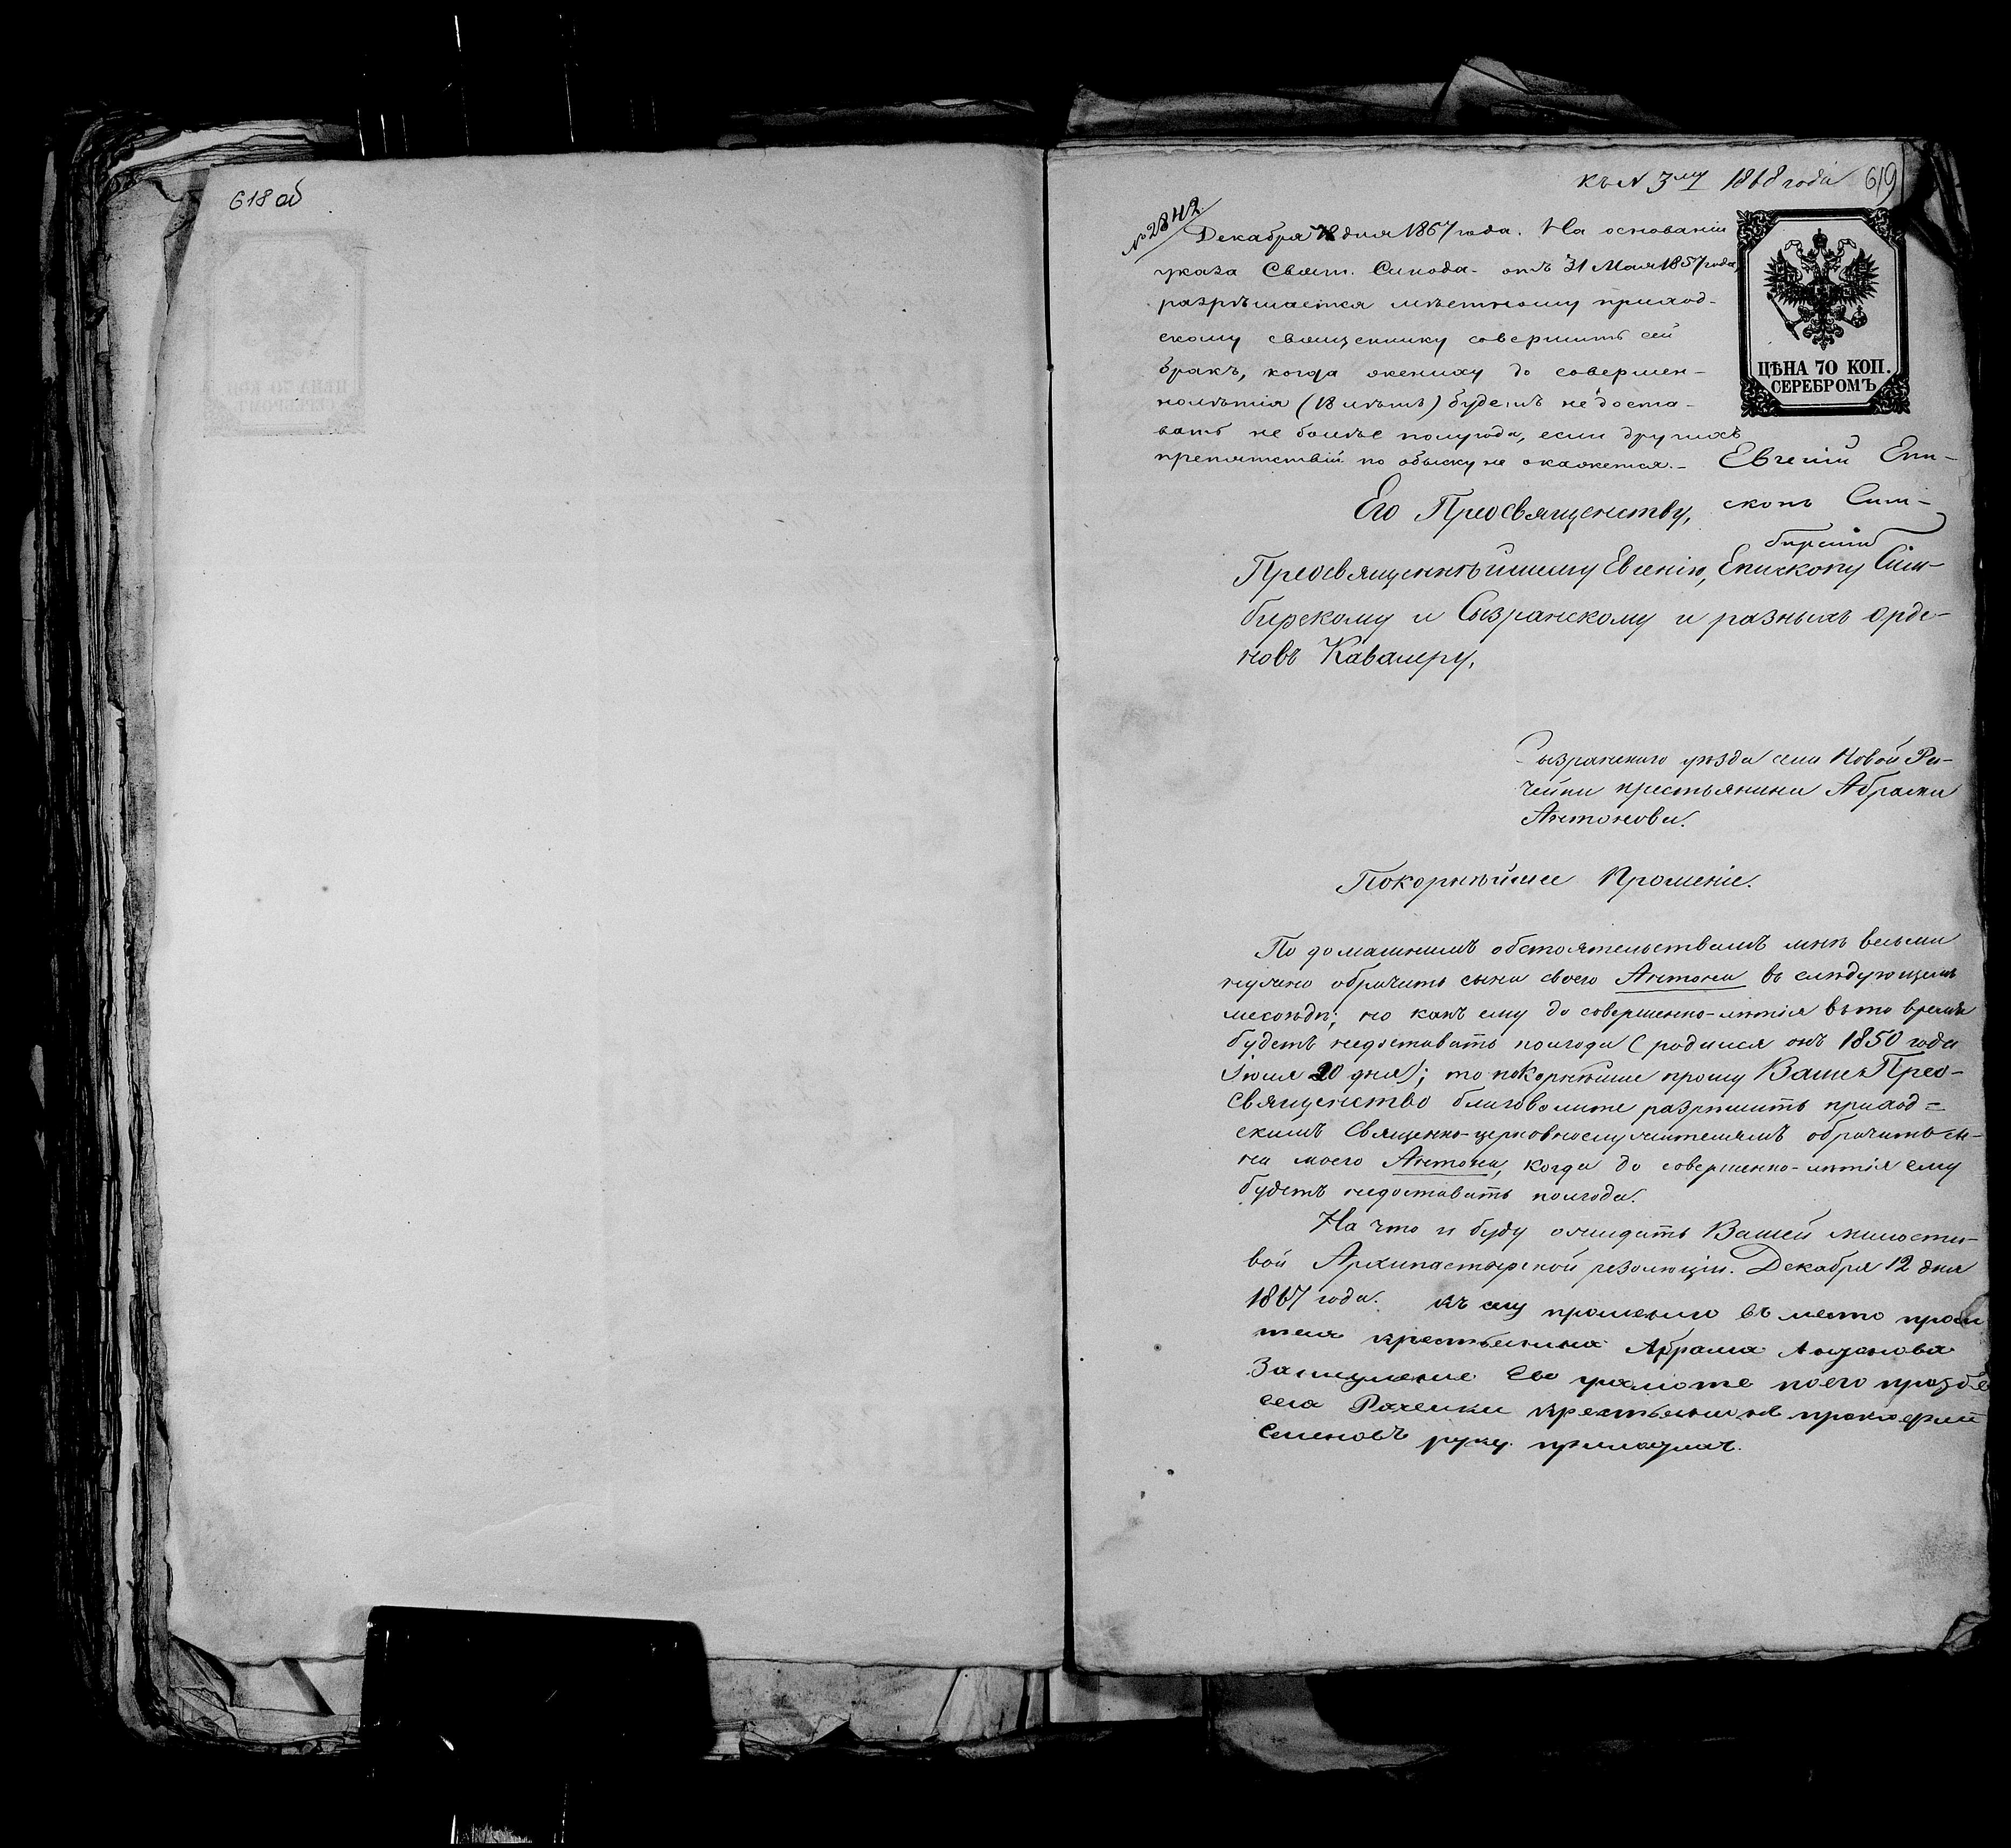 618 об
къ № 3му 1868 года 619
№ 2842
Декабря 18 дня 1867 года. На основаніи
указа Свят. Синода отъ 31 Мая 1857 года,
разрѣшается мѣстному приход-
скому священнику совершить сей
бракъ, когда жениху до совершен-
нолѣтія (18 лѣтъ) будетъ не доста-
вать не болѣе полугода, если другихъ
препятствій по обыску не окажется. - Евгеній Епи-
скопъ Сим-
бирскій
ЦѢНА 70 КОП.
СЕРЕБРОМЪ
Его Преосвященству,
Преосвященнѣйшему Евгенію, Епископу Сим-
бирскому и Сызранскому и разныхъ орде-
новъ Кавалеру,
Сызранскаго уѣзда села Новой Ра-
чейки крестьянина Абрама
Антонова.
Покорнѣйшее Прошеніе.
По домашнимъ обстоятельствамъ мнѣ весьма
нужно обрачить сына своего Антона въ слѣдующемъ
мясоѣдѣ; но какъ ему до совершенно-лѣтія въ то время
будетъ недоставать полгода (родился онъ 1850 года
Іюля 20 дня); то покорнѣйше прошу Ваше Прео-
священство благоволите разрѣшить приход=
скимъ Священно-церковнослужителямъ обрачить сы-
на моего Антона, когда до совершенно-лѣтія ему
будетъ недоставать полгода.
На что и буду ожидать Вашей милости-
вой Архипастырской резолюціи. Декабря 12 дня
1867 года. Къ сему прошенію въ место проси
теля крестьянина Абрама Антонова
За неумение его грамоте по его прозбе
села Рачейки крестьянинъ прокофий
Семеновъ руку приложилъ.